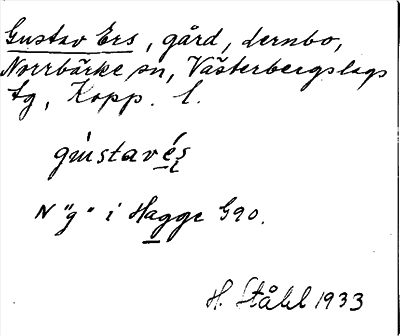 Gustav Ers, gård, Lernbo,
Norrbärke sn, Västerbergslags
tg, Kopp. l.
gùstavés
N "g" i Hagge G90.
H. Ståhl 1933